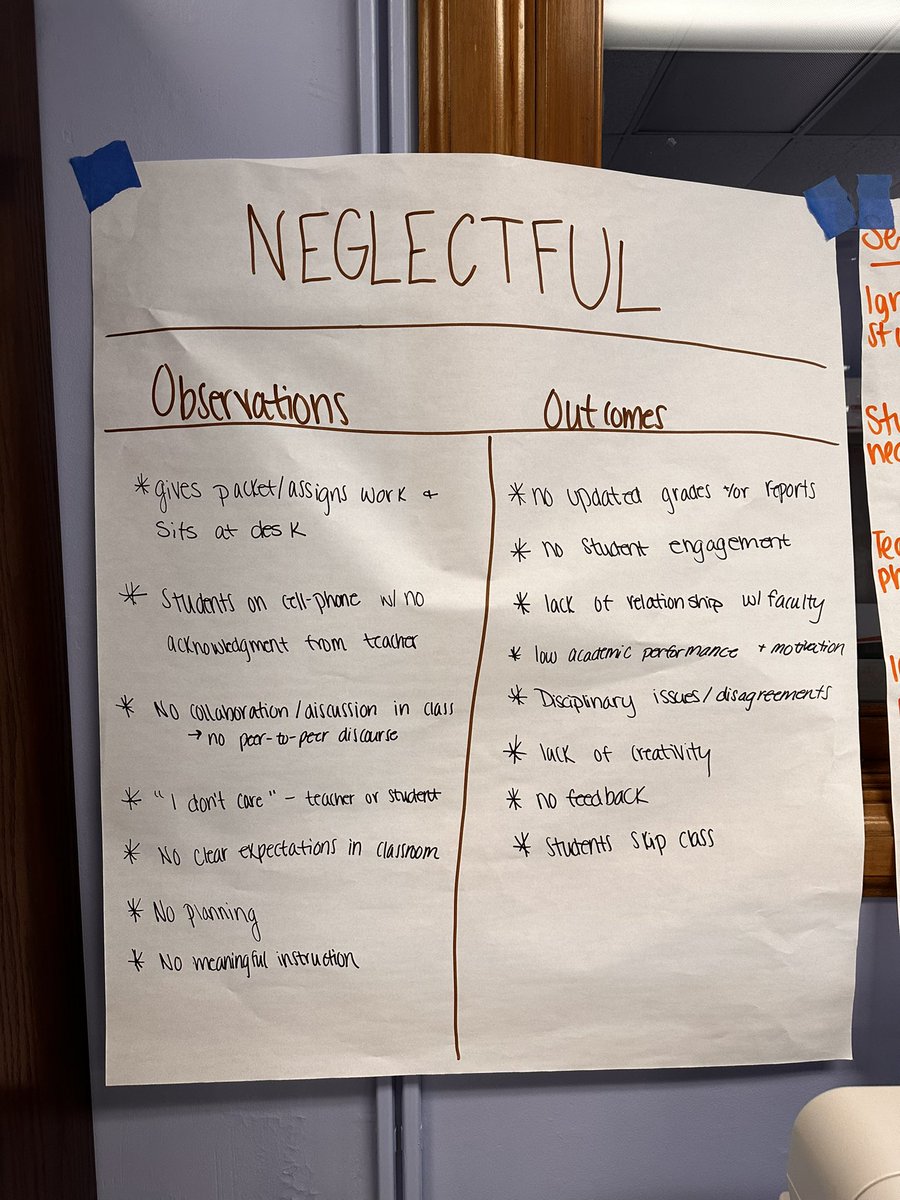 NEGLECTFUL
Observations
* gives packet/assigns work +
sits at desk
* Students on cell-phone w/ no
acknowledgment from teacher
* No collaboration/discussion in class
→ no peer-to-peer discourse
* "I don't care" - teacher or student
* No clear expectations in classroom
* No planning
* No meaningful instruction
Outcomes
* no updated grades +/or reports
* no student engagement
* lack of relationship w/ faculty
* low academic performance + motivation
* Disciplinary issues/disagreements
* lack of creativity
* no feedback
* students skip class
Se
Ign
stu
Stu
nec
Tea
ph